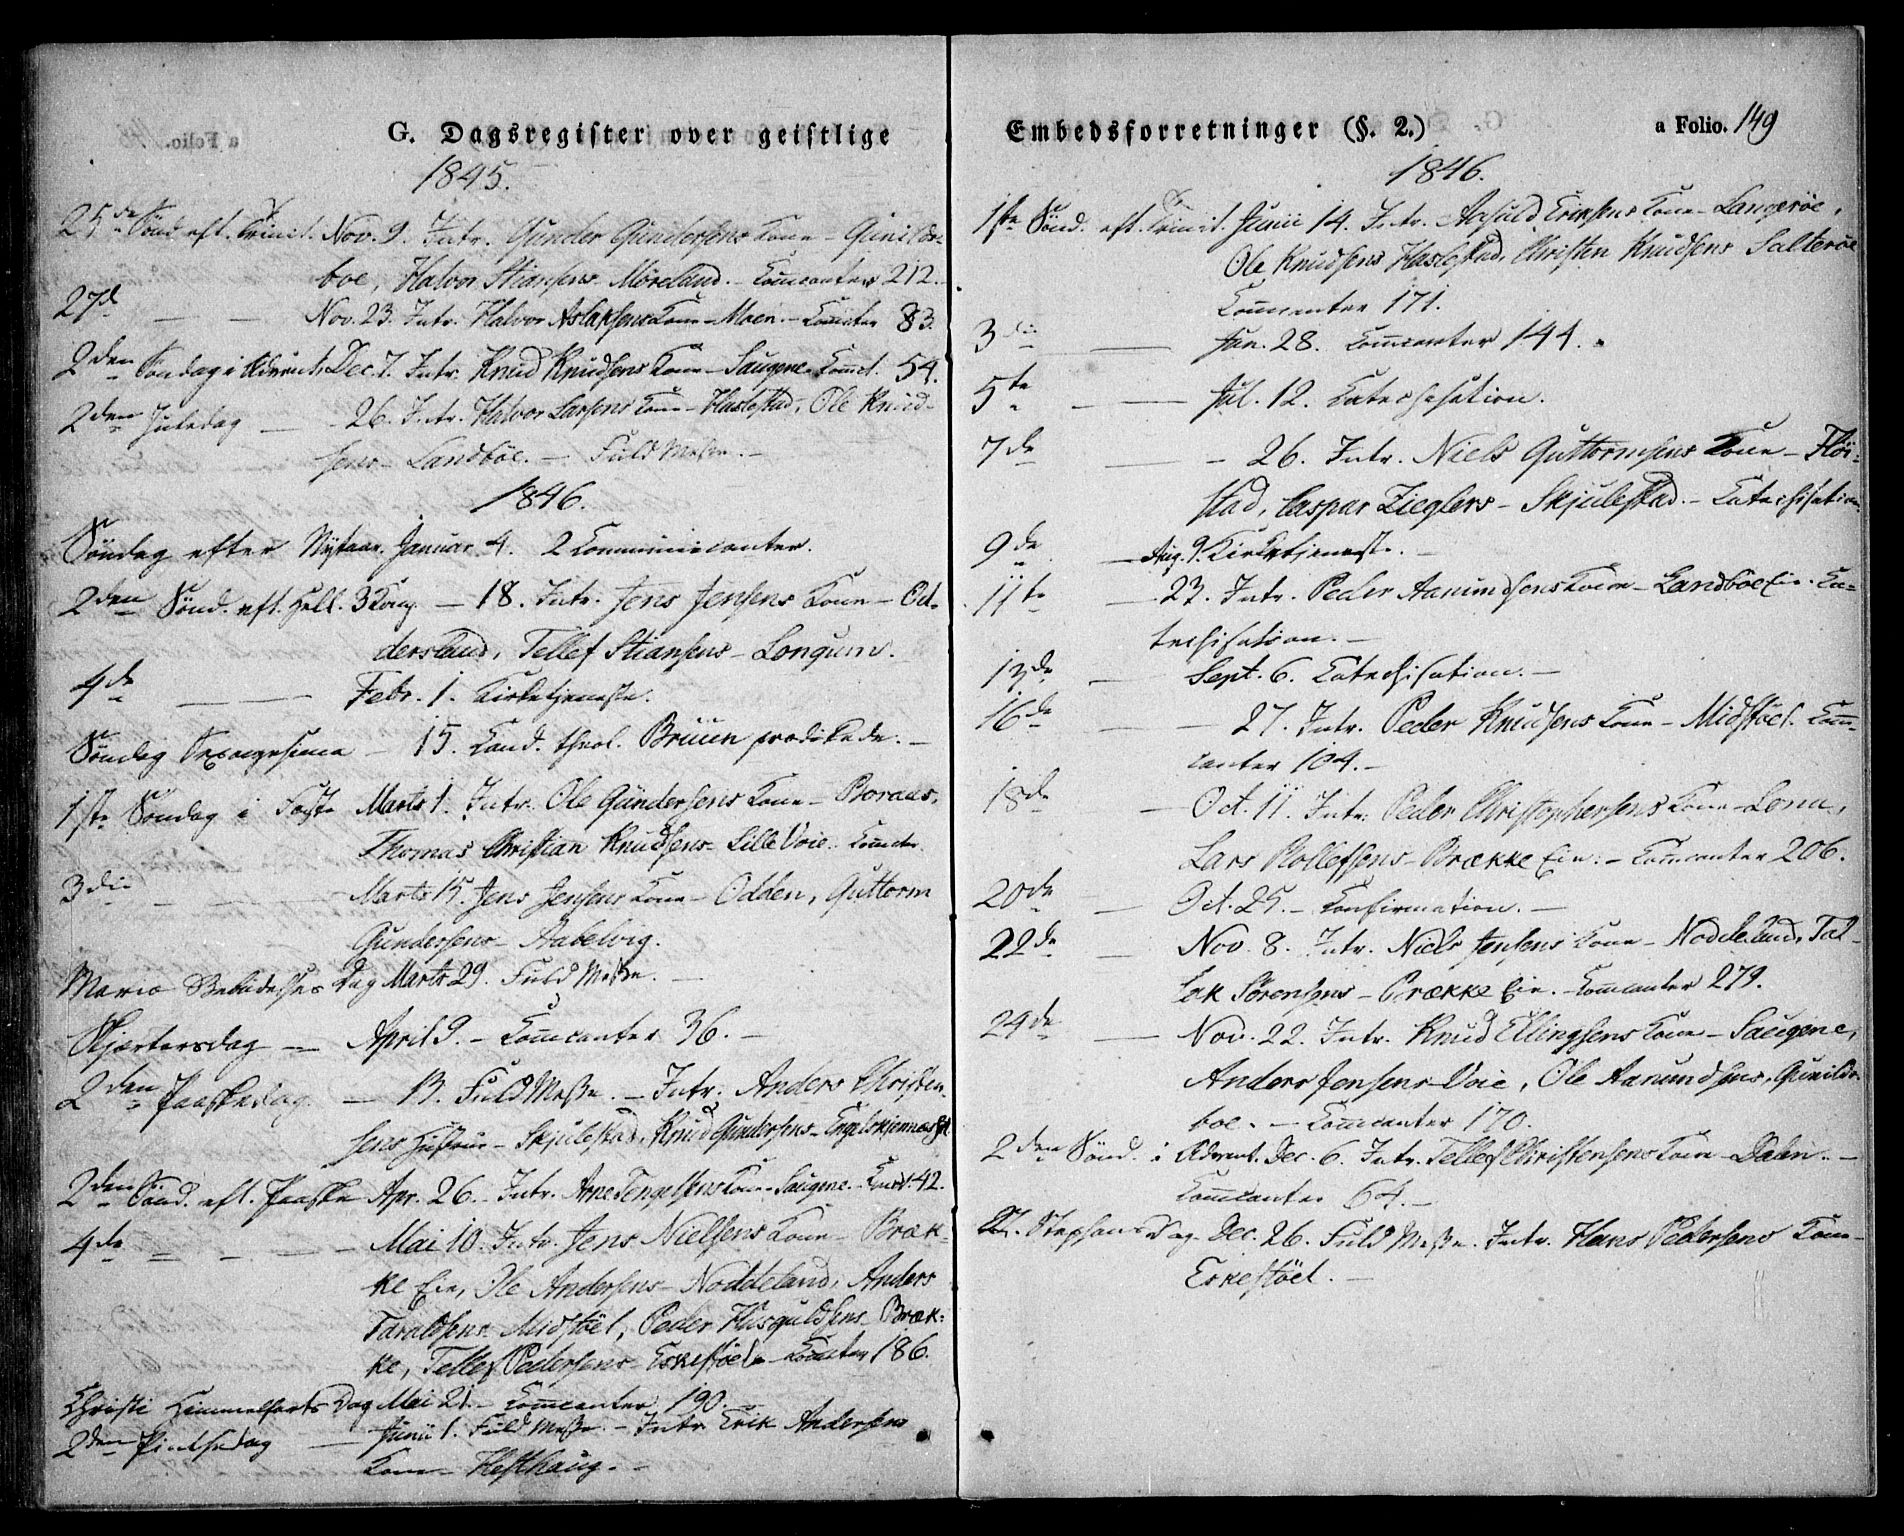 G. Dagsregister over geistlige
1845.
25de Sønd. eft. Trinit. Nov. 9. Intr. Gunder Gundersens Kone - Gunilds-
boe, Halvor Stiansens Møreland. - Comcanter 212.
27de — — Nov. 23. Intr. Halvor Aslaksens Kone - Moen. - 83.
2den Søndag i Advent. Dec. 7. Intr. Knud Knudsens Kone - Saugene. 54.
2den Juledag — 26. Intr. Halvor Larsens Kone - Haslestad, Ole Knud-
sens - Landbøe. - Fuld Messe. -
1846.
Søndag efter Nytaar. Januar 4. 2 Communicanter.
2den Sønd. eft. Hell. 3 Kong. - 18. Intr. Jens Jensens Kone - Od-
dersland, Tellef Stiansens - Longum.
4de — — Febr. 1. Kirketjeneste.
Søndag Sexagesima - 15. Cand. theol. Bruun prædikede. -
1ste Søndag i Faste Marts 1. Intr. Ole Gundersens Kone - Boraas,
Thomas Christian Knudsens - Lille Voie.
3die - - - Marts 15. Jens Jensens Kone - Odden, Guttorm
Gundersens - Aabelvig.
Maria Bebudelses Dag Marts 29. Fuld Messe. -
Skjærtorsdag — April 9. - Comcanter 36. -
2den Paaskedag. - 13. Fuld Messe. - Intr. Anders Christen-
sens Hustru - Skjulestad, Knud Gundersens - Engelskjennas
2den Sønd. eft. Paaske Apr. 26. Intr. Arne Tengelsens Kone - Saugene. 42.
4de - - - - Mai 10. Intr. Jens Nielsens Kone - Bræk-
ke Eie, Ole Andersens - Noddeland, Anders
Taraldsens Midstøel, Peder Husguldsens Bræk-
ke, Tellef Pedersens Eskestøel - 186.
Christi Himmelfarts Dag Mai 21. - Comcanter 190. -
2den Pintsedag — Junii 1. Fuld Messe. - Intr. Erik Andersens
Kone - Hesthaug. -
Embedsforretninger (§. 2.)
a Folio. 149
1846.
1ste Sønd. eft. Trinit. Junii 14. Intr. Asfuld Eriksens Kone - Langerøe,
Ole Knudsens Haslestad, Christen Knudsens Salterøe
Comcanter 171.
3die — Jun. 28. Comcanter 144.
5te - — Jul. 12. Catechisation.
7de — - 26. Intr. Niels Guttormsens Kone - Fløi-
stad, Caspar Zieglers - Skjulestad. - Catechisation
9de — Aug. 9. Kirketjeneste. -
11te — 23. Intr. Peder Aanundsens Kone - Landbøe Eie. Ca-
techisation. -
13de — Sept. 6. Catechisation. -
16de — - 27. Intr. Peder Knudsens Kone - Midstøel. Com-
canter 104. -
18de - Oct. 11. Intr. Peder Christophersens Kone - Lona,
Lars Rollefsens - Brække Eie. - Comcanter 206.
20de — Oct. 25. - Confirmation. -
22de — Nov. 8. Intr. Niels Jensens Kone - Noddeland, Tal-
lak Sørensens - Brække Eie. - Comcanter 279.
24de — Nov. 22. Intr. Knud Ellingsens Kone - Saugene,
Anders Jensens Voie, Ole Aanundsens, Gunilds-
boe. - Comcanter 170.
2den Sønd. i Advent. Dec. 6. Intr. Tellef Christensens Kone - Dalen. -
Comcanter 64. -
St. Stephans Dag. Dec. 26. Fuld Messe. Intr. Hans Pedersens Kone -
Eskestøel. -